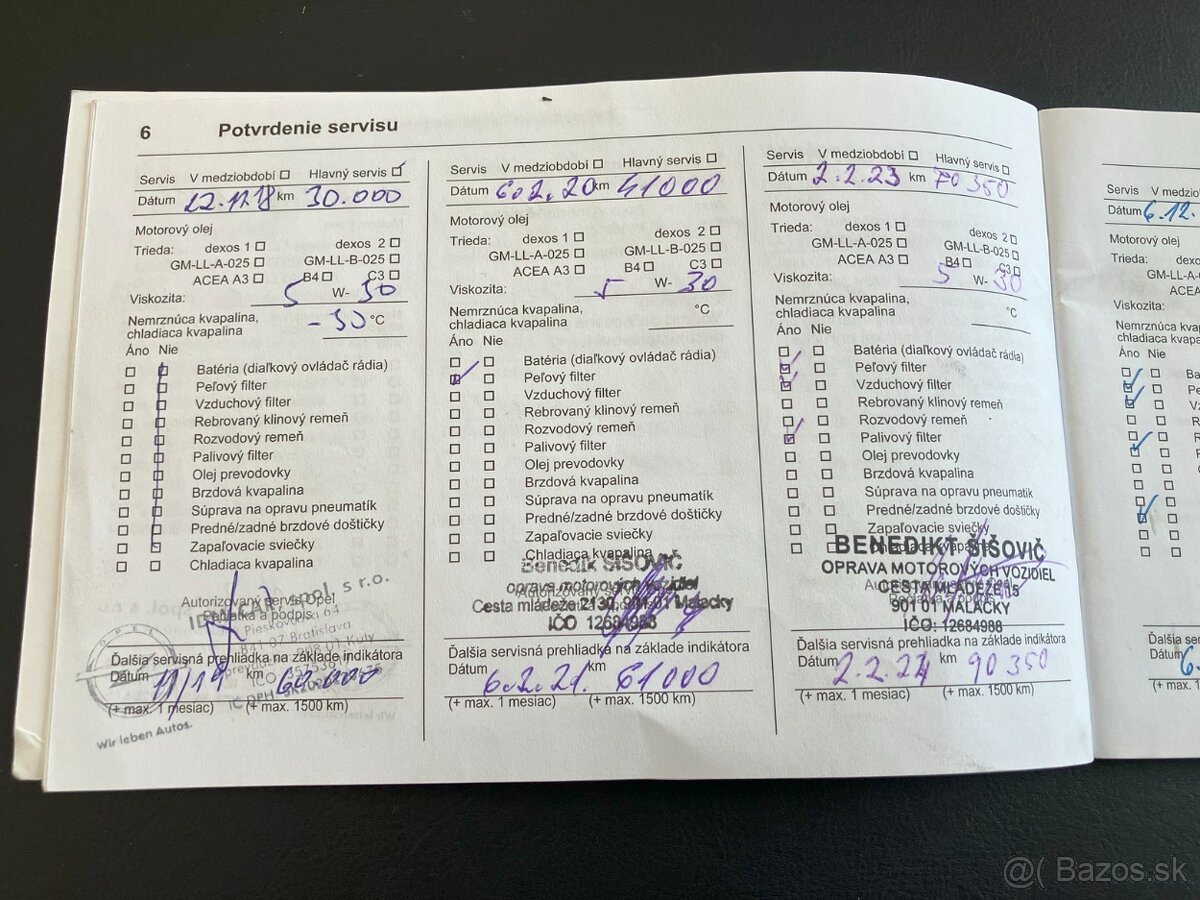 6 Potvrdenie servisu
Servis V medziobdobí Hlavný servis
Dátum 22.11.18 km 30.000
Motorový olej
Trieda: dexos 1 dexos 2
GM-LL-A-025 GM-LL-B-025
ACEA A3 B4 C3
Viskozita: 5 W- 30
Nemrznúca kvapalina,
chladiaca kvapalina -30 °C
Áno Nie
Batéria (diaľkový ovládač rádia)
Peľový filter
Vzduchový filter
Rebrovaný klinový remeň
Rozvodový remeň
Palivový filter
Olej prevodovky
Brzdová kvapalina
Súprava na opravu pneumatík
Predné/zadné brzdové doštičky
Zapaľovacie sviečky
Chladiaca kvapalina
Autorizovaný servis Opel
Pečiatka a podpis
opel, s r.o.
Pieskovcová 64
841 07 Bratislava
OPEL
Ďalšia servisná prehliadka na základe indikátora
Dátum 11/19 km 60.000
(+ max. 1 mesiac) (+ max. 1500 km)
Wir leben Autos.
Servis V medziobdobí Hlavný servis
Dátum 6.2.20 km 41000
Motorový olej
Trieda: dexos 1 dexos 2
GM-LL-A-025 GM-LL-B-025
ACEA A3 B4 C3
Viskozita: 5 W- 30
Nemrznúca kvapalina,
chladiaca kvapalina °C
Áno Nie
Batéria (diaľkový ovládač rádia)
Peľový filter
Vzduchový filter
Rebrovaný klinový remeň
Rozvodový remeň
Palivový filter
Olej prevodovky
Brzdová kvapalina
Súprava na opravu pneumatík
Predné/zadné brzdové doštičky
Zapaľovacie sviečky
Chladiaca kvapalina
Benedik ŠIŠOVIČ
oprava motorových vozidiel
Cesta mládeže 2130, 901 01 Malacky
IČO 12684988
Ďalšia servisná prehliadka na základe indikátora
Dátum 6.2.21. km 61000
(+ max. 1 mesiac) (+ max. 1500 km)
Servis V medziobdobí Hlavný servis
Dátum 2.2.23 km 70 350
Motorový olej
Trieda: dexos 1 dexos 2
GM-LL-A-025 GM-LL-B-025
ACEA A3 B4 C3
Viskozita: 5 W- 30
Nemrznúca kvapalina,
chladiaca kvapalina °C
Áno Nie
Batéria (diaľkový ovládač rádia)
Peľový filter
Vzduchový filter
Rebrovaný klinový remeň
Rozvodový remeň
Palivový filter
Olej prevodovky
Brzdová kvapalina
Súprava na opravu pneumatík
Predné/zadné brzdové doštičky
Zapaľovacie sviečky
Chladiaca kvapalina
BENEDIKT ŠIŠOVIČ
OPRAVA MOTOROVÝCH VOZIDIEL
CESTA MLÁDEŽE 15
901 01 MALACKY
IČO: 12684988
Ďalšia servisná prehliadka na základe indikátora
Dátum 2.2.24 km 90 350
(+ max. 1 mesiac) (+ max. 1500 km)
Servis V medzio
Dátum 6.12.
Motorový olej
Trieda: dexo
GM-LL-A-
ACEA
Viskozita:
Nemrznúca kvap
chladiaca kvapa
Áno Nie
Ba
Pe
Ďalšia se
Dátum 6.
(+ max. 1
@( Bazos.sk